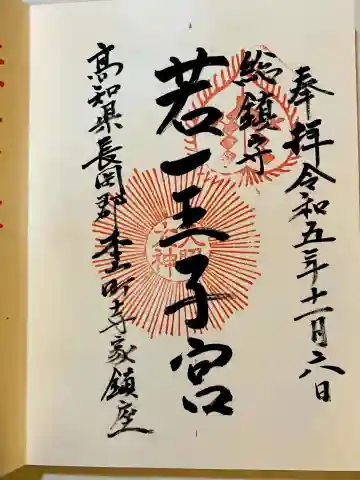 奉拝 令和五年十一月六日
総鎮守
若一王子宮
高知県長岡郡本山町寺家鎮座